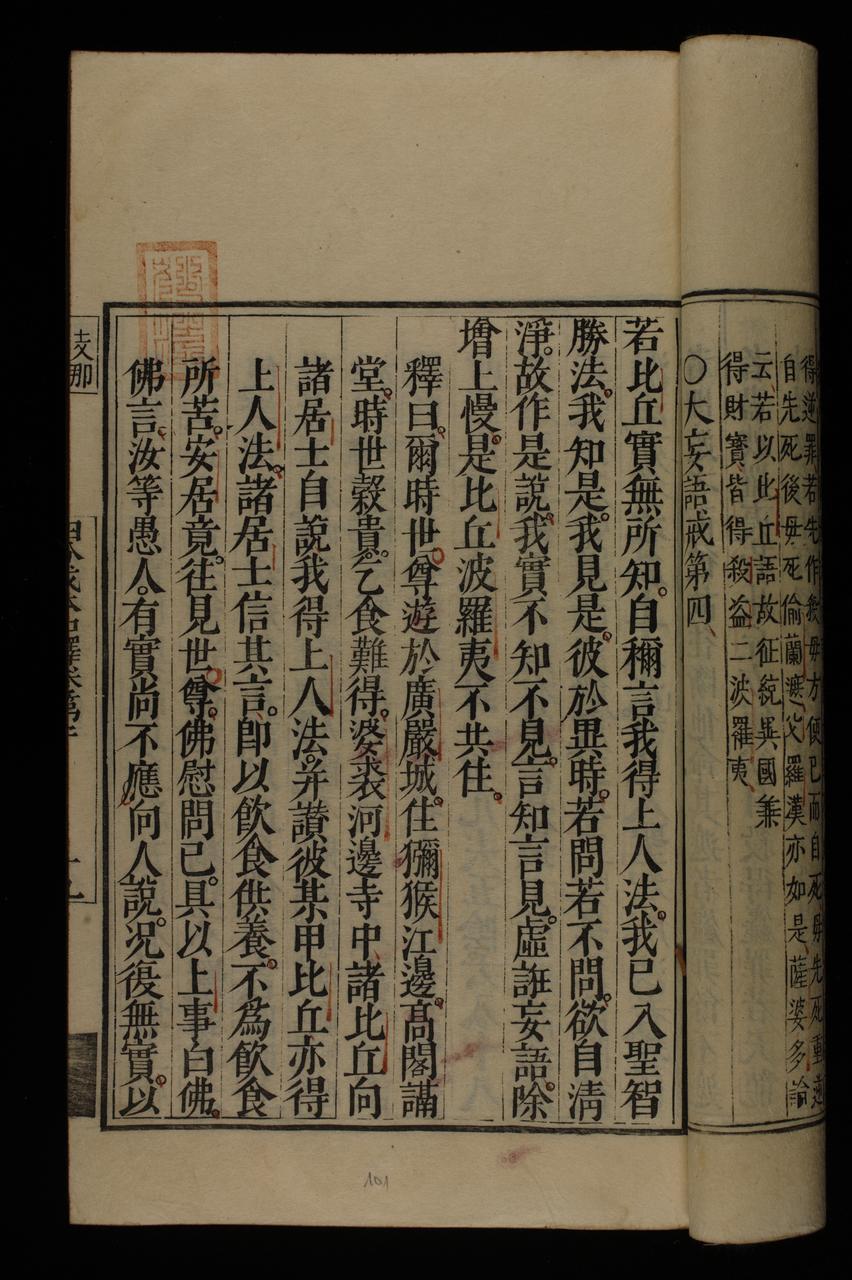 得逆罪若先作殺母方便已而自死母先死重逆
自先死後母死偷蘭遮父羅漢亦如是薩婆多論
云若以比丘語故征統異國兼
得財寶皆得殺盜二波羅夷
○大妄語戒第四
若比丘實無所知自稱言我得上人法我已入聖智
勝法我知是我見是彼於異時若問若不問欲自清
淨故作是說我實不知不見言知言見虛誑妄語除
增上慢是比丘波羅夷不共住
釋曰爾時世尊遊於廣嚴城住獼猴江邊高閣講
堂時世穀貴乞食難得婆裘河邊寺中諸比丘向
諸居士自說我得上人法并讚彼某甲比丘亦得
上人法諸居士信其言即以飲食供養不為飲食
所苦安居竟往見世尊佛慰問已具以上事白佛
佛言汝等愚人有實尚不應向人說況復無實以
支那